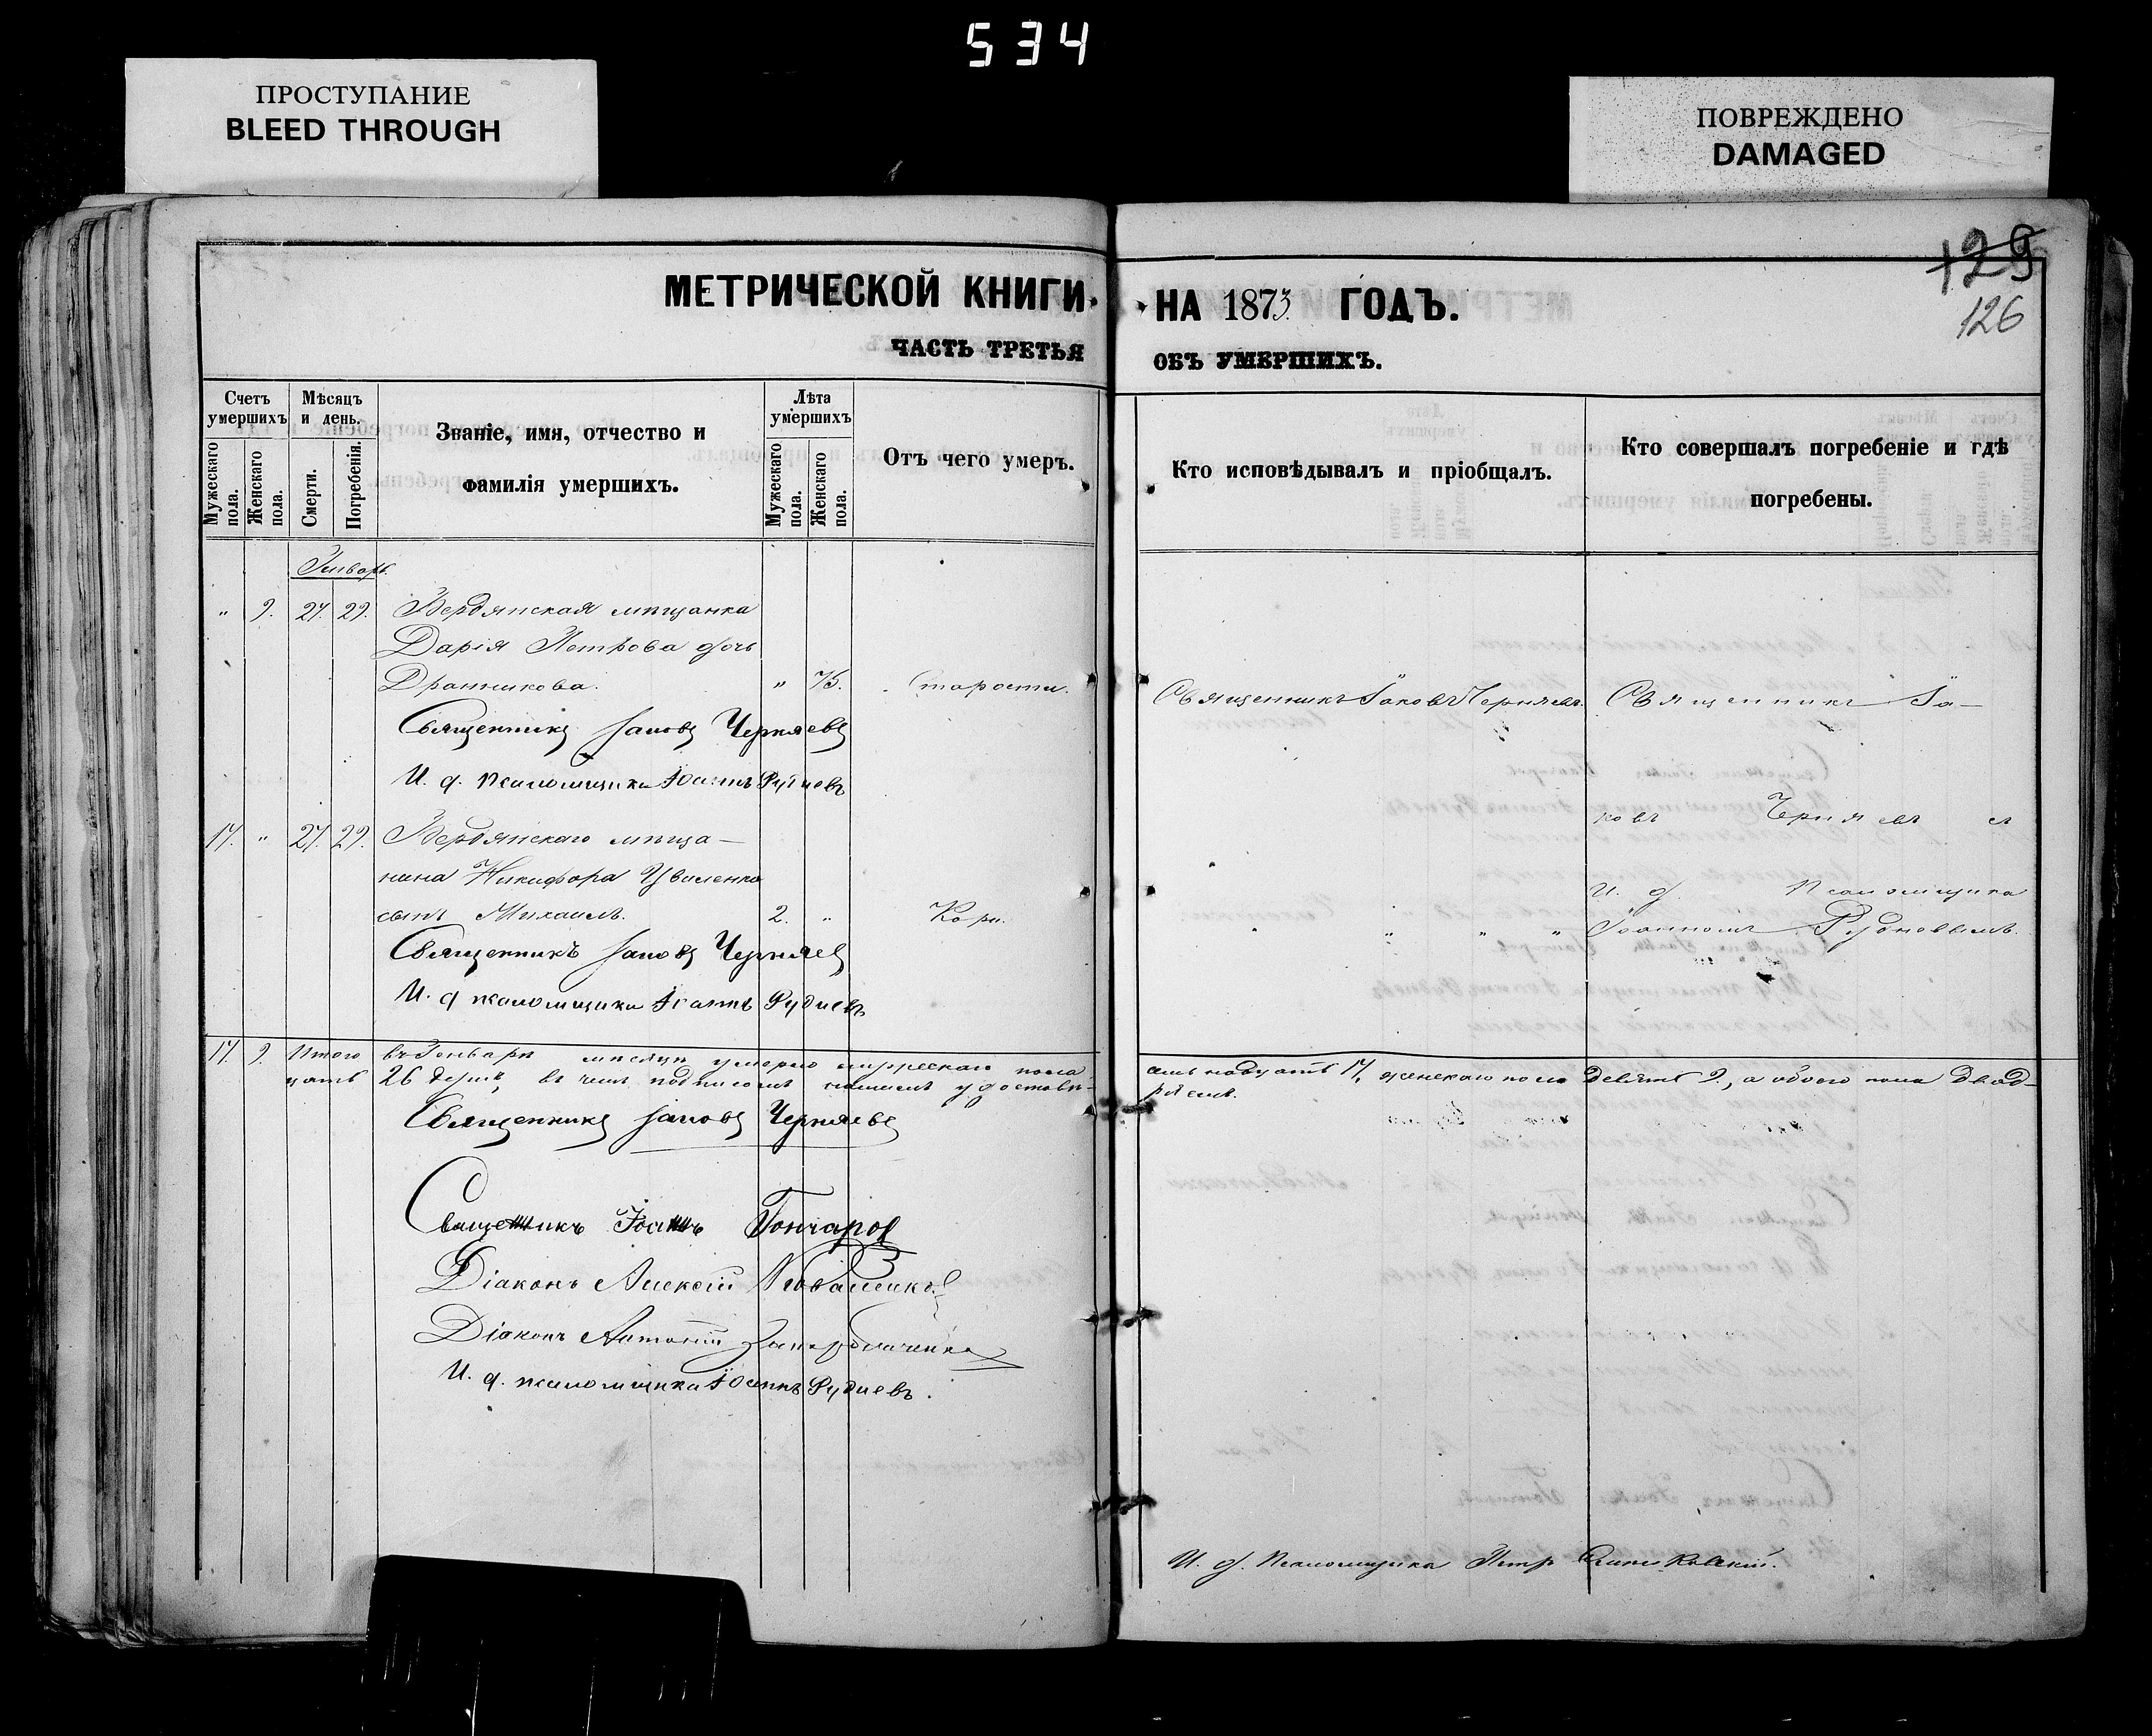 534
ПРОСТУПАНИЕ
BLEED THROUGH
ПОВРЕЖДЕНО
DAMAGED
129
126
МЕТРИЧЕСКОЙ КНИГИ НА 1873 ГОДЪ.
ЧАСТЬ ТРЕТЬЯ ОБЪ УМЕРШИХЪ.
Счетъ умершихъ
Мужескаго пола.
Женскаго пола.
Мѣсяцъ и день.
Смерти.
Погребенія.
Званіе, имя, отчество и
фамилія умершихъ.
Лѣта умершихъ
Мужескаго пола.
Женскаго пола.
Отъ чего умеръ.
Кто исповѣдывалъ и пріобщалъ.
Кто совершалъ погребеніе и гдѣ
погребены.
Январь.
" 9. 27. 29. Бердянская мѣщанка
Дарія Петрова дочь
" 75. Старости.
Священникъ Іаковъ Черняевъ. Священникъ Іа-
Священникъ Іаковъ Черняевъ
И. д. псаломщика Іоаннъ Рудневъ
ковъ Черняевъ съ
и. д. псаломщика
Іоанномъ Рудневымъ.
17. " 27. 29. Бердянскаго мѣща-
нина Никифора
сынъ Михаилъ. 2. " Кори. " " "
Священникъ Іаковъ Черняевъ
И. д псаломщика Іоаннъ Рудневъ
17. 9. Итого въ Январѣ мѣсяцѣ умерло мужескаго пола семьнадцать 17, женскаго пола девять 9., а обоего пола двад-
цать 26 душъ, въ чемъ подписомъ нашимъ удостовѣ-
ряемъ.
Священникъ Іаковъ Черняевъ
Священникъ Іоаннъ Гончаров
Діаконъ Алексій
Діаконъ Антоній
И. д. псаломщика Іоаннъ Рудневъ.
И. д. Псаломщика Петр